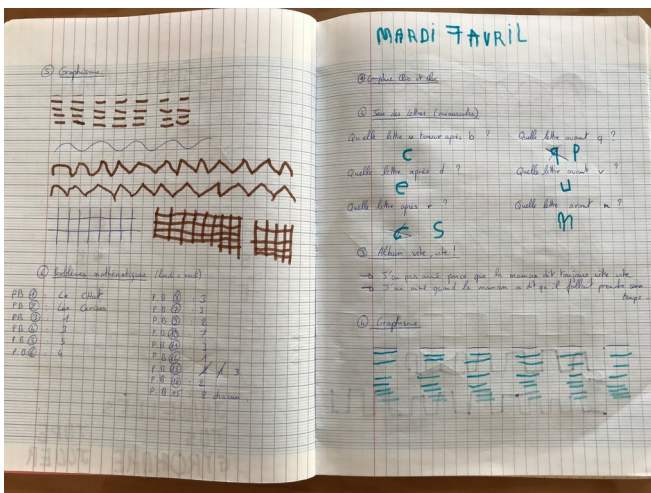 ⑤ Graphisme
⑥ Problèmes mathématiques
PB ① : Le CHat
PB ② :
PB ③ : 1
P.B ④ : 3
P.B ⑤ : 5
P.B ⑥ : 4
P.B ⑧ : 3
P.B ⑨ : 2
P.B ⑭ : 2
P.B 15 : 2 chacun
MARDI 7 AVRIL
② Jeu des lettres (minuscules)
Quelle lettre se trouve après b ?
c
Quelle lettre après d ?
e
Quelle lettre après r ?
S
Quelle lettre avant q ?
q P
Quelle lettre avant v ?
u
Quelle lettre avant n ?
m
③ Album vite, vite !
→ J'ai pas aimé parce que la maman dit toujours vite vite
→ J'ai aimé quand la maman a dit qu'il fallait prendre son
temps.
④ Graphisme